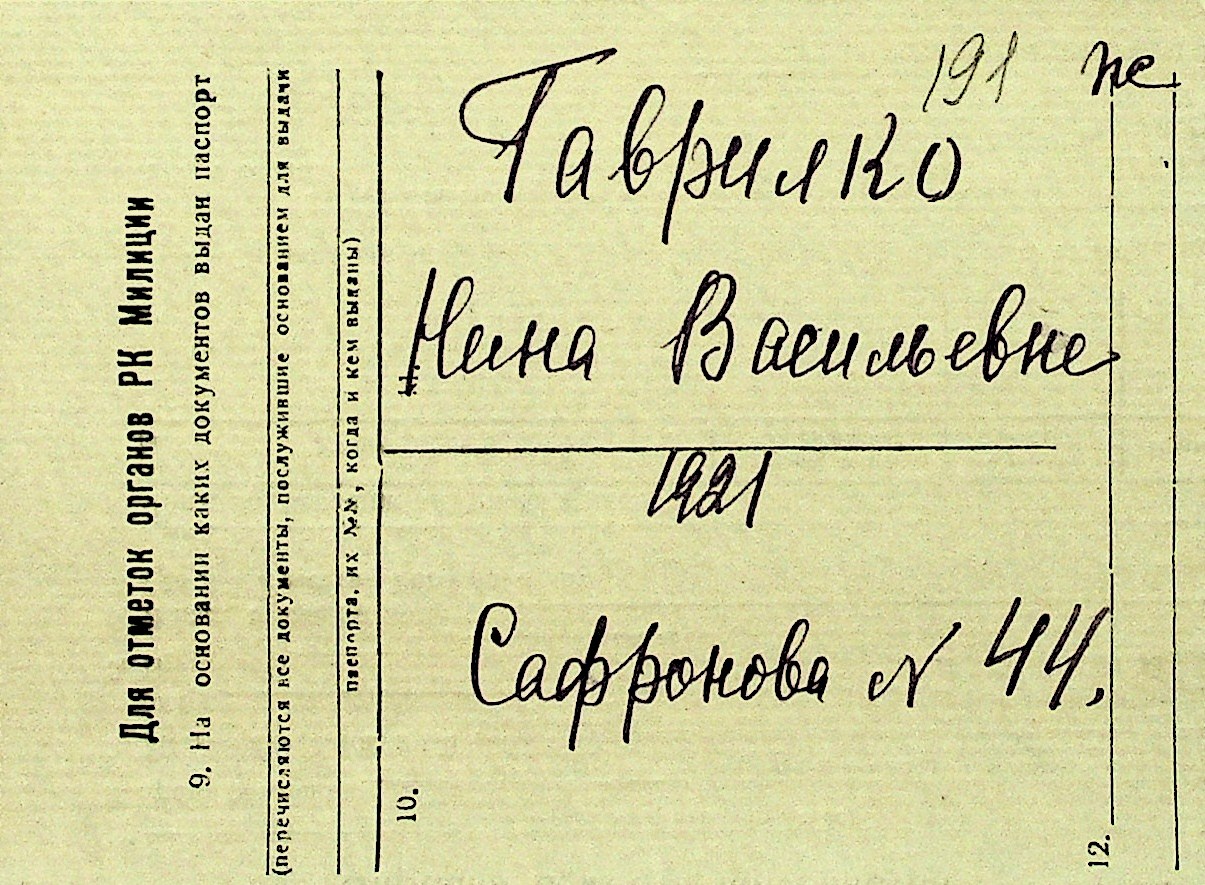 191 ж
Гаврилко
Нина Васильевне
1921
Сафронова N 44,
Для отметок органов РК Милиции
9. На основании каких документов выдан паспорт
(перечисляются все документы, послужившие основанием для выдачи
паспорта, их №№, когда и кем выданы)
10.
12.